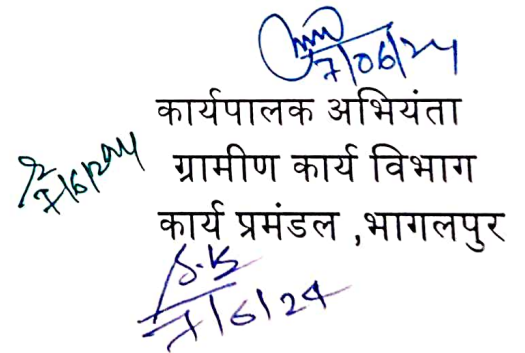 7/06/24
कार्यपालक अभियंता
7/6/24
ग्रामीण कार्य विभाग
कार्य प्रमंडल ,भागलपुर
S.K
7/6/24